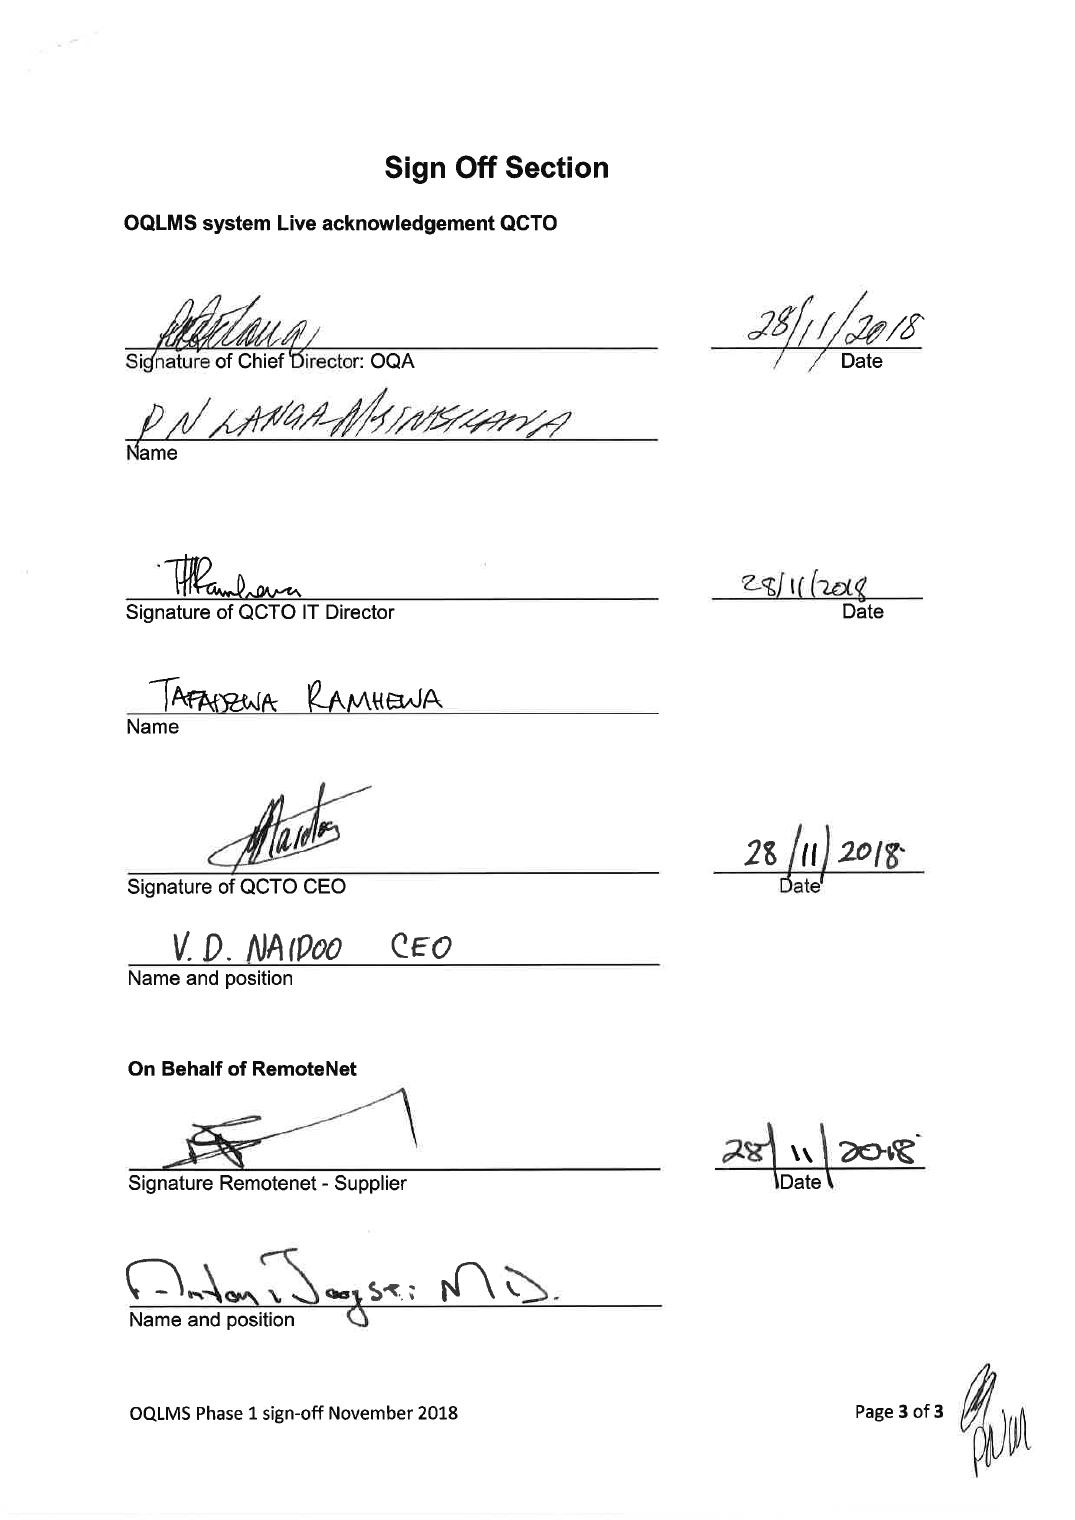 Sign Off Section
OQLMS system Live acknowledgement QCTO
28/11/2018
Signature of Chief Director: OQA
Date
P N LANGA-
Name
28/11/2018
Signature of QCTO IT Director
Date
TAFADZWA RAMHEWA
Name
Naidoo
28/11/2018
Signature of QCTO CEO
Date
V. D. NAIDOO CEO
Name and position
On Behalf of RemoteNet
28/11/2018
Signature Remotenet - Supplier
Date
M D.
Name and position
OQLMS Phase 1 sign-off November 2018
Page 3 of 3